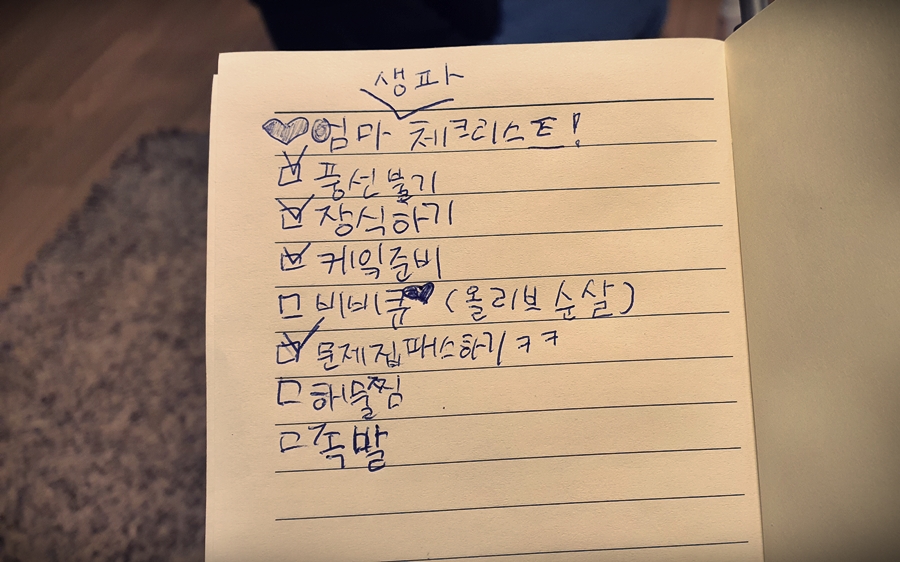 생파
엄마 체크리스트!
풍선불기
장식하기
케익준비
비비큐 (올리브 순살)
문제집패스하기 ㅋㅋ
해물찜
족발